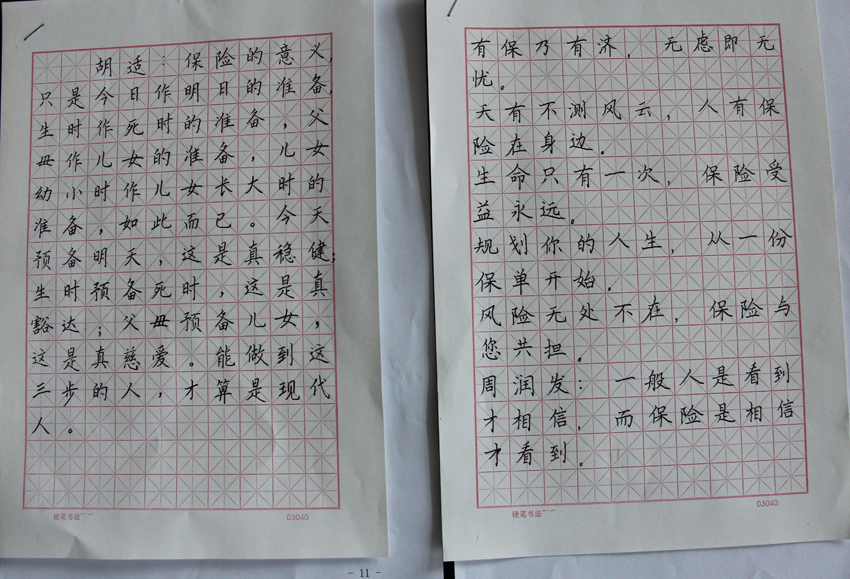 胡适:保险的意义,
只是今日作明日的准备,
生时作死时的准备,父
母作儿女的准备,儿女
幼小时作儿女长大时的
准备,如此而已。今天
预备明天,这是真稳健;
生时预备死时,这是真
豁达;父母预备儿女,
这是真慈爱。能做到这
三步的人,才算是现代
人。
硬笔书法
03040
有保乃有济,无虑即无
忧。
天有不测风云,人有保
险在身边。
生命只有一次,保险受
益永远。
规划你的人生,从一份
保单开始。
风险无处不在,保险与
您共担。
周润发:一般人是看到
才相信,而保险是相信
才看到。
硬笔书法
03040
- 11 -